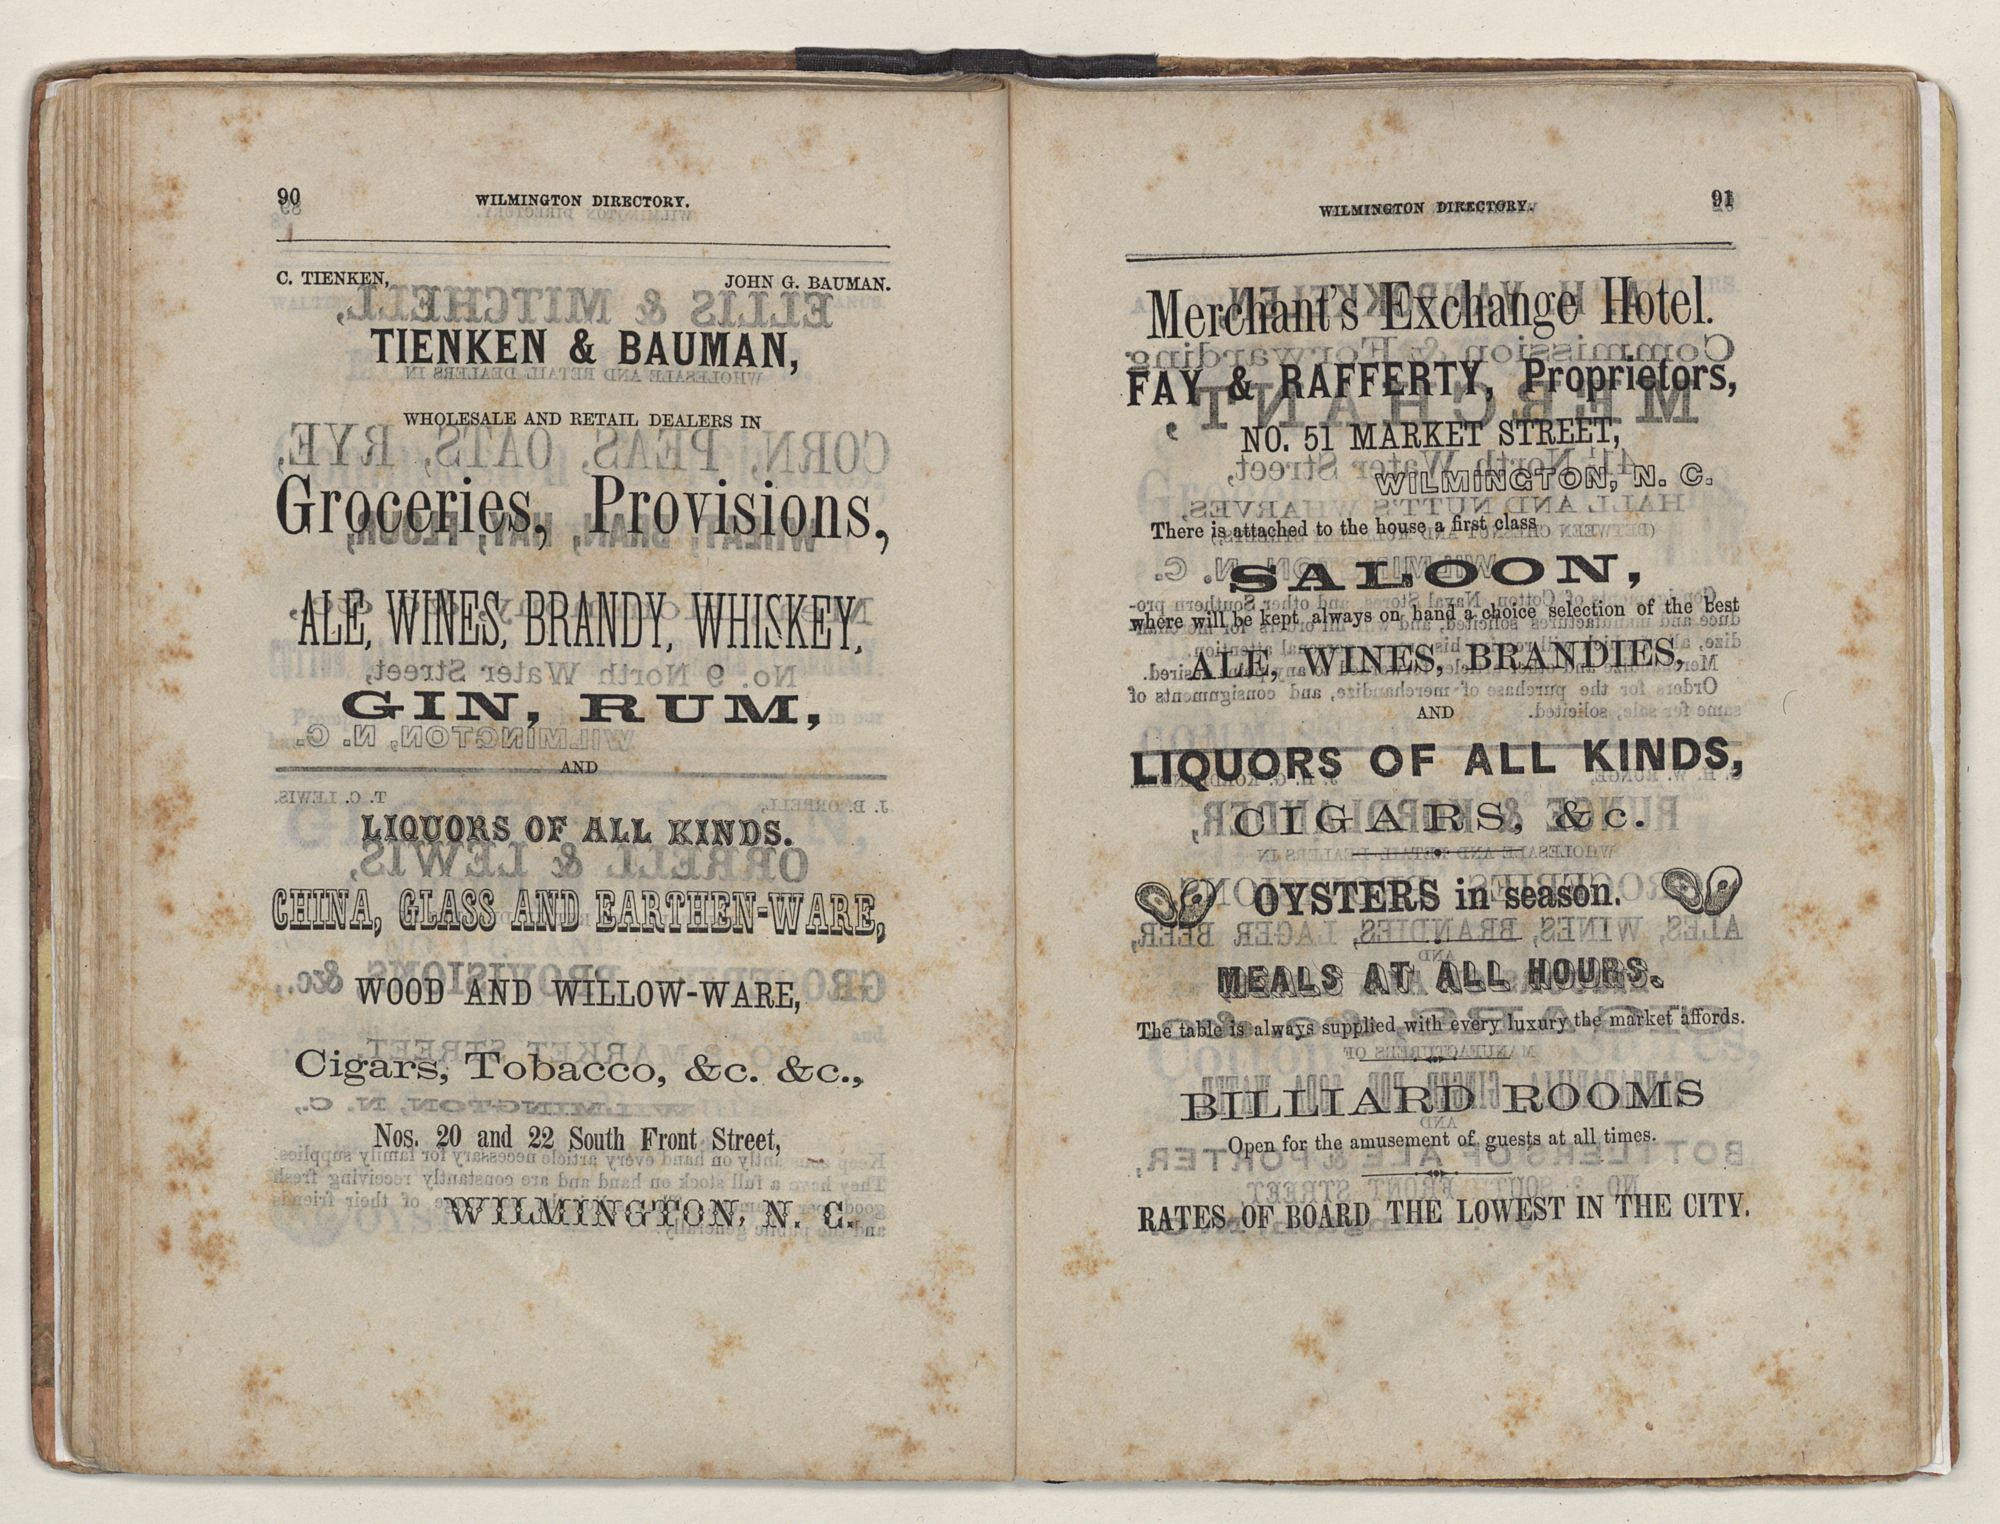 90
WILMINGTON DIRECTORY.
C. TIENKEN,
JOHN G. BAUMAN.
TIENKEN & BAUMAN,
WHOLESALE AND RETAIL DEALERS IN
Groceries, Provisions,
ALE, WINES, BRANDY, WHISKEY,
GIN, RUM,
AND
LIQUORS OF ALL KINDS.
CHINA, GLASS AND EARTHEN-WARE,
WOOD AND WILLOW-WARE,
Cigars, Tobacco, &c. &c.,
Nos. 20 and 22 South Front Street,
WILMINGTON, N. C.
WILMINGTON DIRECTORY.
91
Merchant's Exchange Hotel.
FAY & RAFFERTY, Proprietors,
NO. 51 MARKET STREET,
WILMINGTON, N. C.
There is attached to the house a first class
SALOON,
where will be kept always on hand a choice selection of the best
ALE, WINES, BRANDIES,
AND
LIQUORS OF ALL KINDS,
CIGARS, &c.
OYSTERS in season.
MEALS AT ALL HOURS.
The table is always supplied with every luxury the market affords.
BILLIARD ROOMS
Open for the amusement of guests at all times.
RATES OF BOARD THE LOWEST IN THE CITY.